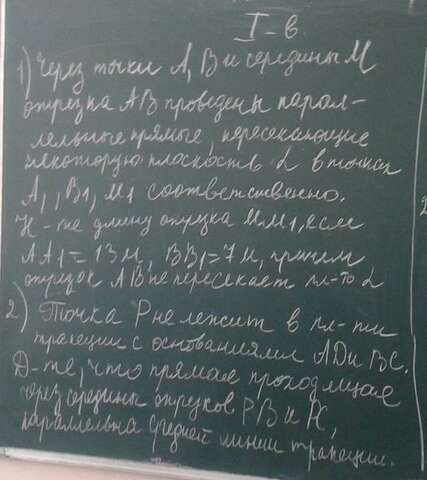 I-в
1) Через точки A, B и середины M
отрезка AB проведены парал-
лельные прямые, пересекающие
некоторую плоскость α в точках
A1, B1, M1 соответственно.
Н-те длину отрезка MM1, если
AA1 = 13 м, BB1 = 7 м, причем
отрезок AB не пересекает пл-ть α
2) Точка P не лежит в пл-ти
трапеции с основаниями AD и BC.
Д-те, что прямая проходящая
через середины отрезков PB и PC,
параллельна средней линии трапеции.
2